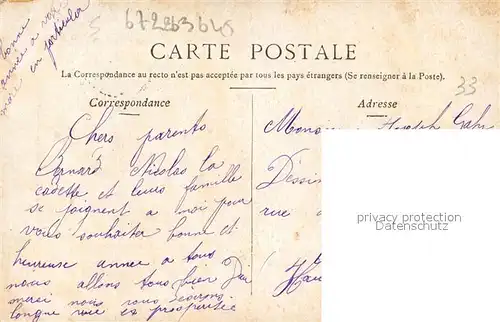 bonne
année à
en particulier
6728364S
CARTE POSTALE
La Correspondance au recto n'est pas acceptée par tous les pays étrangers (Se renseigner à la Poste).
33
Correspondance
Adresse
Chers parents
Bernard Nicolas la
cadette et leurs famille
se joignent a moi pour
vous souhaiter bonne et
heureuse annee a tous
nous allons tous bien
merci nous vous
longue vie et prosperite
Joseph
Dessin
rue
privacy protection
Datenschutz